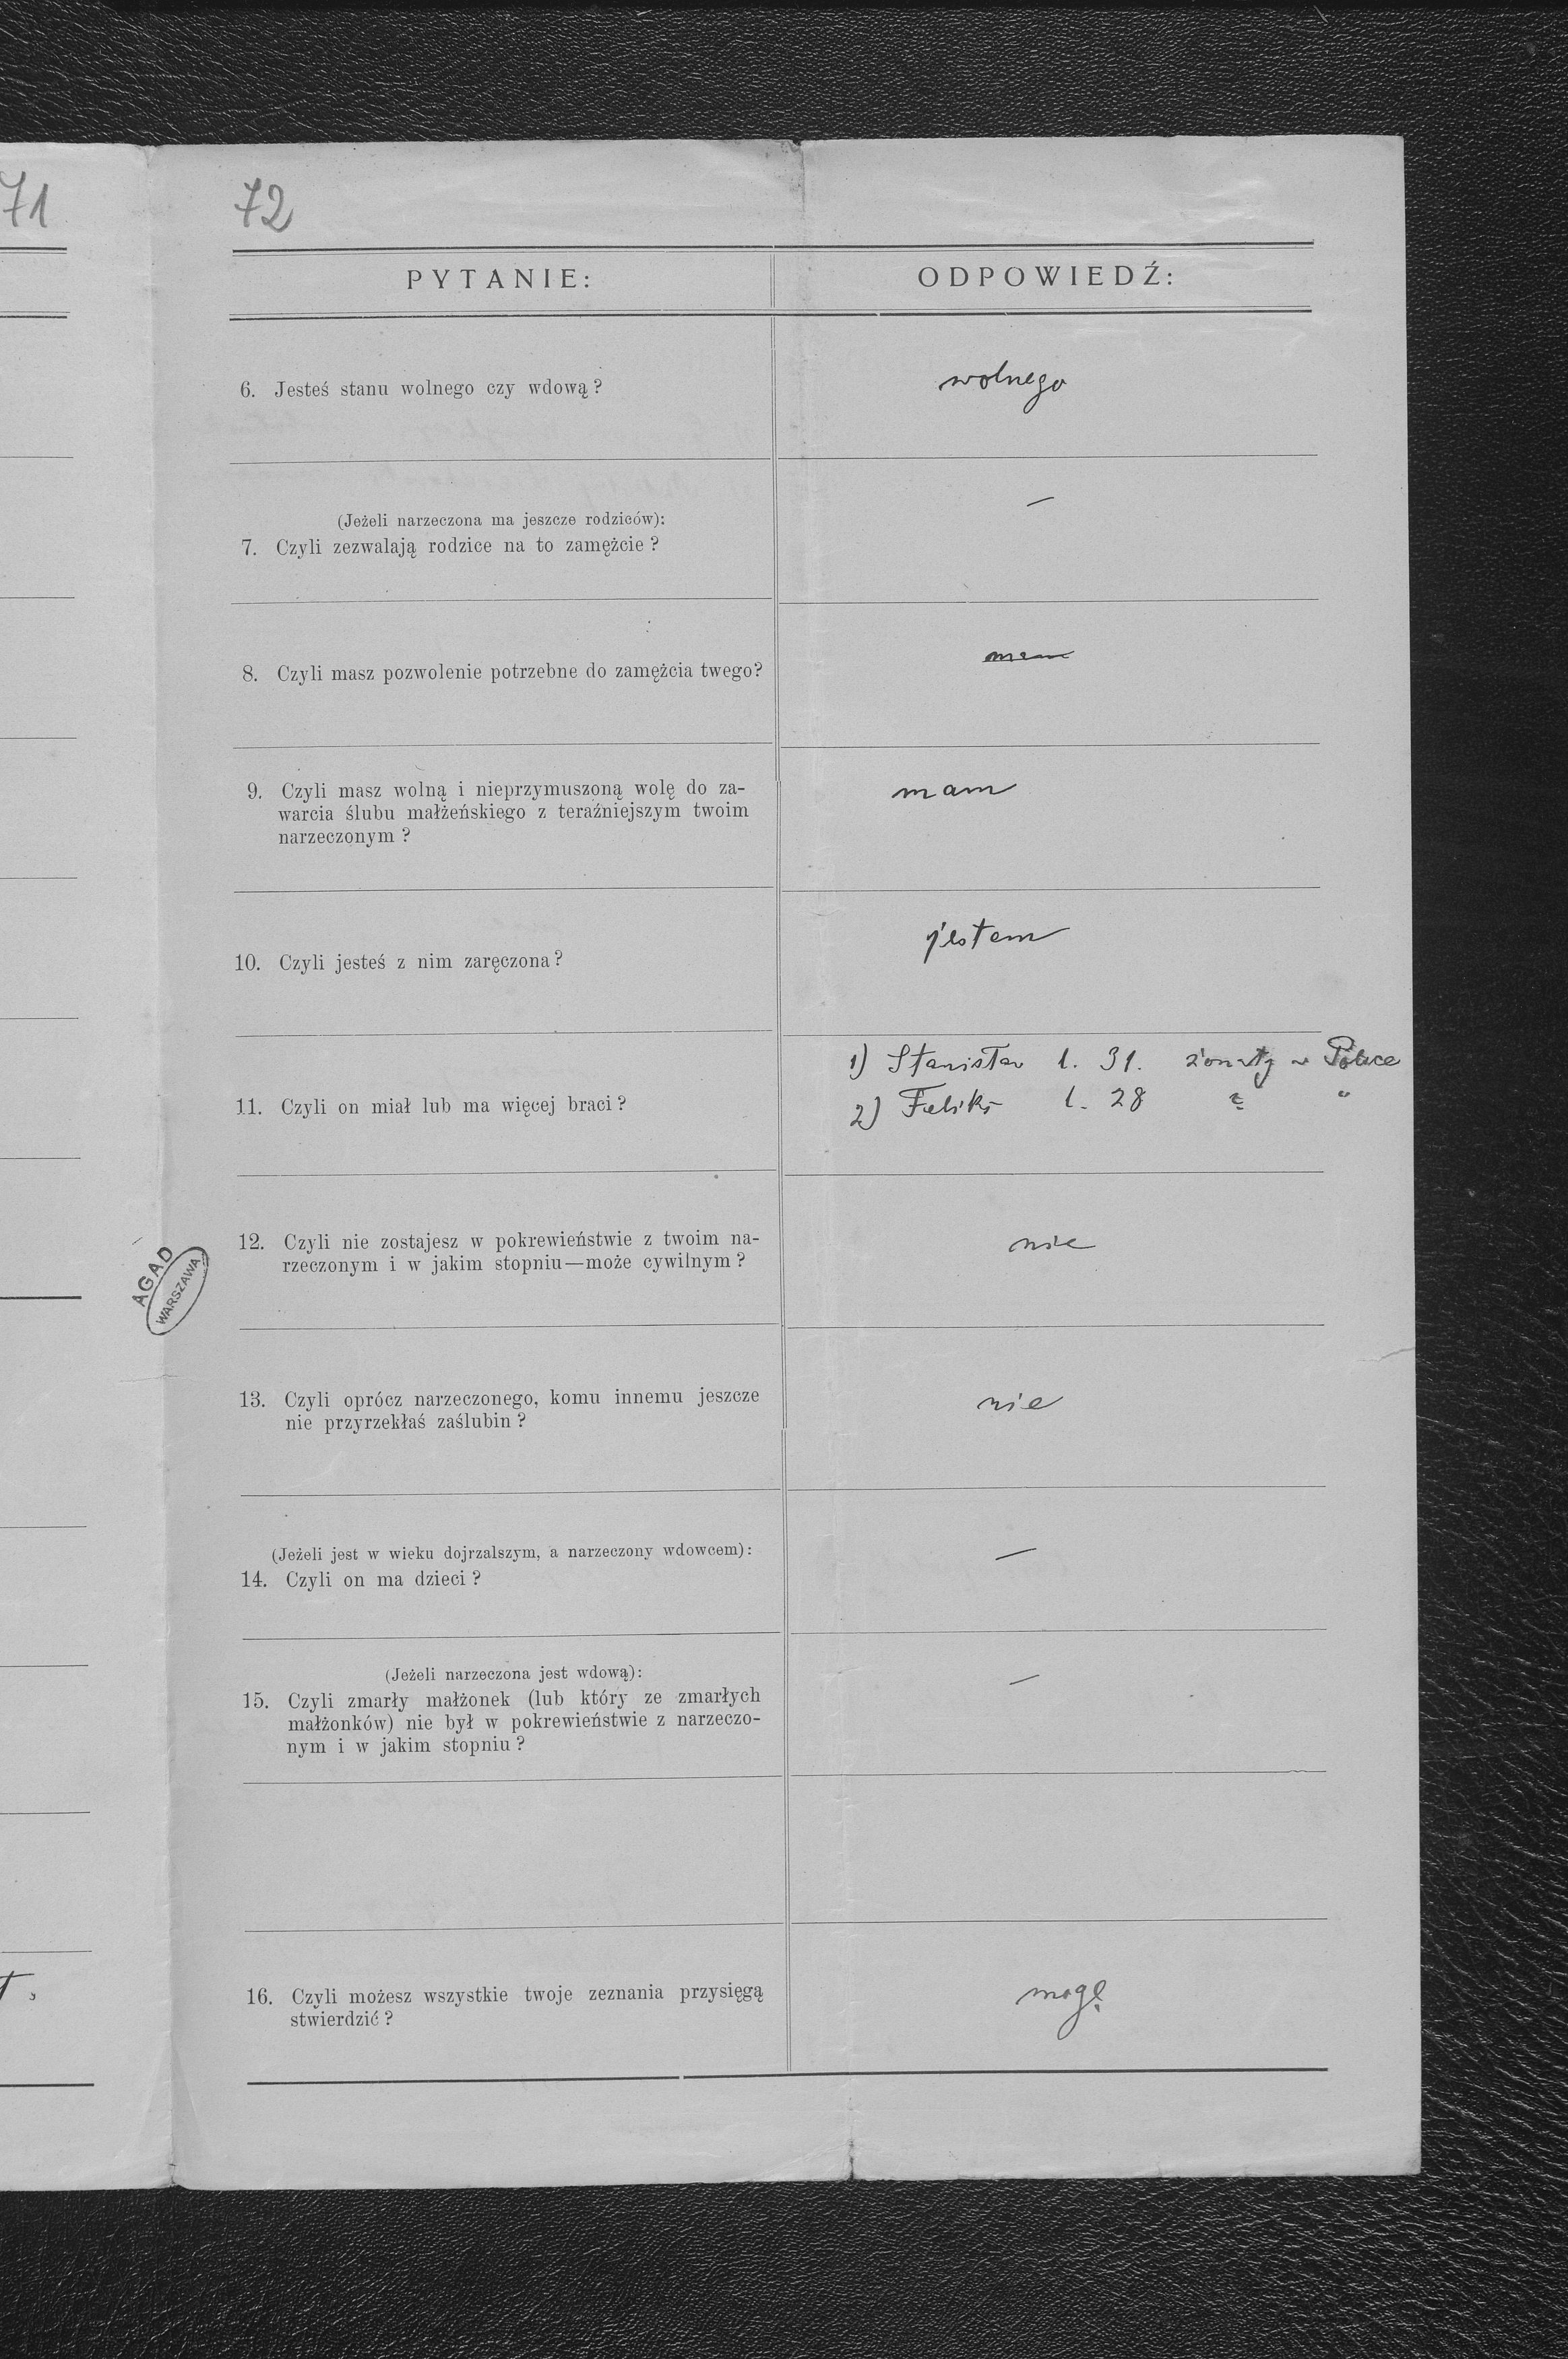 71
72
PYTANIE:
ODPOWIEDŹ:
6. Jesteś stanu wolnego czy wdową?
wolnego
(Jeżeli narzeczona ma jeszcze rodziców):
7. Czyli zezwalają rodzice na to zamężcie?
—
8. Czyli masz pozwolenie potrzebne do zamężcia twego?
mam
9. Czyli masz wolną i nieprzymuszoną wolę do za-
warcia ślubu małżeńskiego z teraźniejszym twoim
narzeczonym?
mam
10. Czyli jesteś z nim zaręczona?
jestem
11. Czyli on miał lub ma więcej braci?
1) Stanisław l. 31. żonaty w Polsce
2) Feliks l. 28 "
12. Czyli nie zostajesz w pokrewieństwie z twoim na-
rzeczonym i w jakim stopniu—może cywilnym?
nie
13. Czyli oprócz narzeczonego, komu innemu jeszcze
nie przyrzekłaś zaślubin?
nie
(Jeżeli jest w wieku dojrzalszym, a narzeczony wdowcem):
14. Czyli on ma dzieci?
—
(Jeżeli narzeczona jest wdową):
15. Czyli zmarły małżonek (lub który ze zmarłych
małżonków) nie był w pokrewieństwie z narzeczo-
nym i w jakim stopniu?
—
16. Czyli możesz wszystkie twoje zeznania przysięgą
stwierdzić?
mogę
AGAD
WARSZAWA